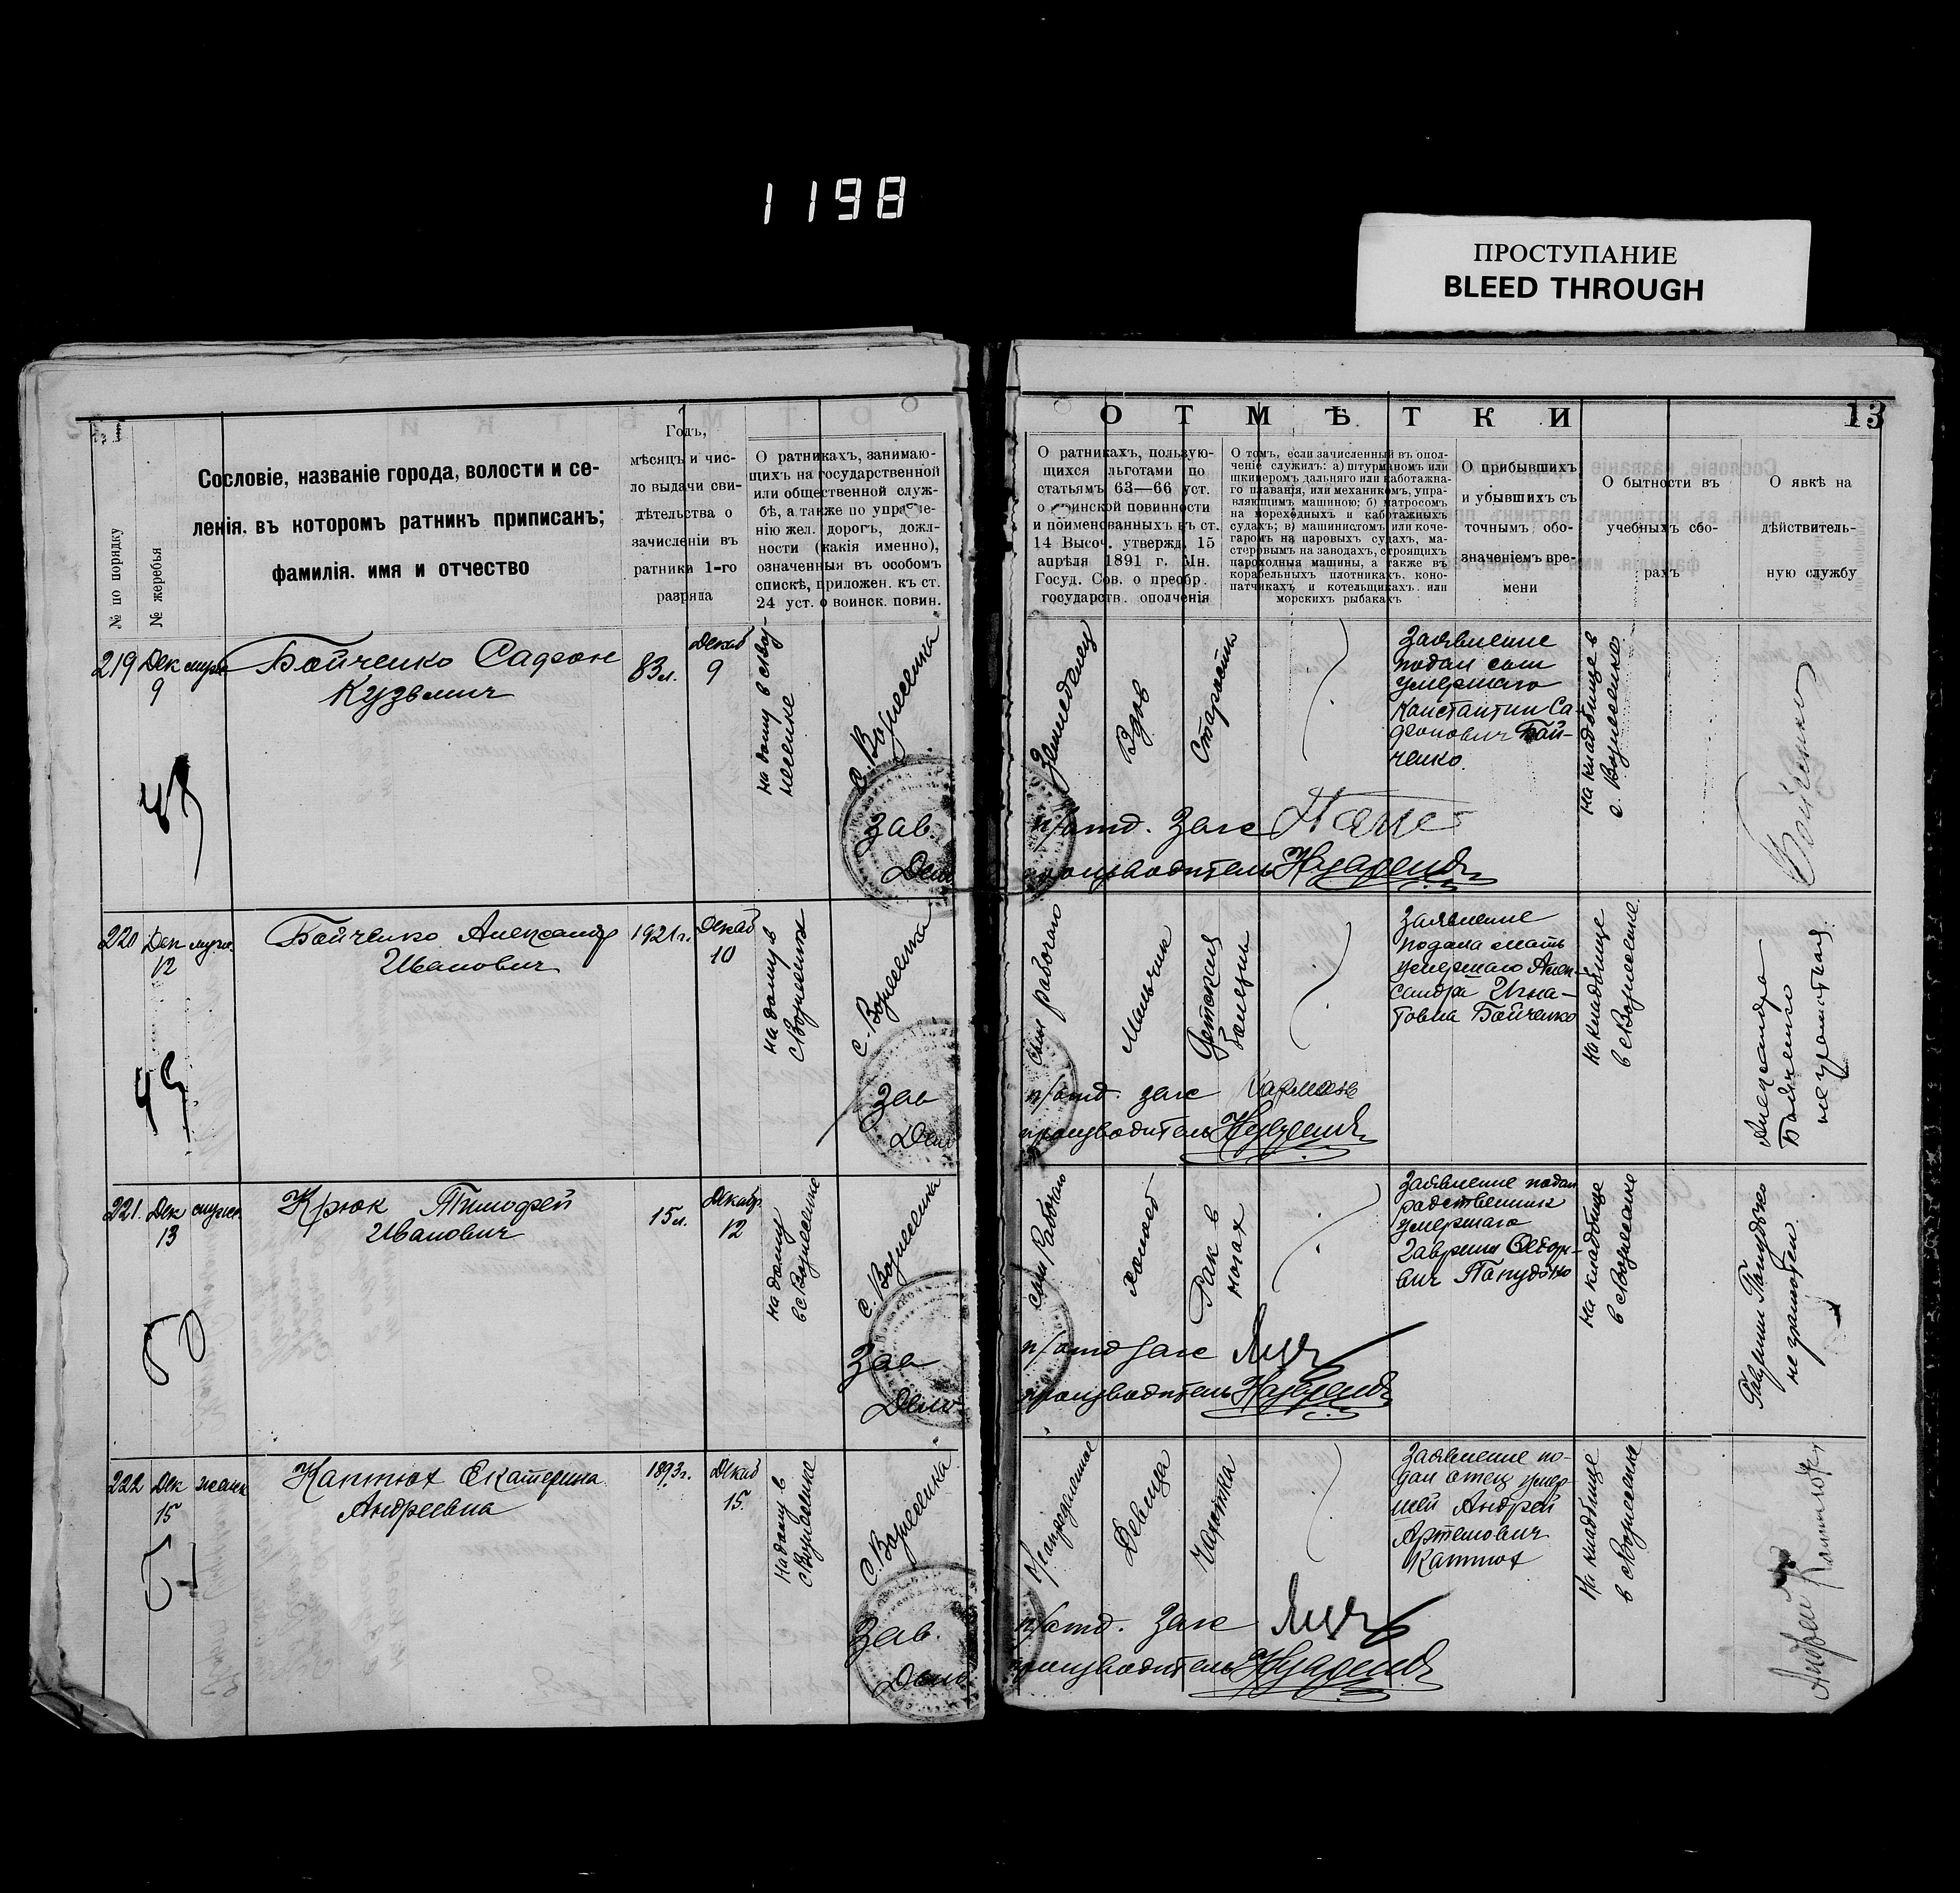 1198
ПРОСТУПАНИЕ
BLEED THROUGH
№ по порядку
№ жеребья
Сословіе, названіе города, волости и се-
ленія, въ которомъ ратникъ приписанъ;
фамилія, имя и отчество
Годъ,
мѣсяцъ и чис-
ло выдачи сви-
дѣтельства о
зачисленіи въ
ратники 1-го
разряда
О ратникахъ, занимаю-
щихъ на государственной
или общественной служ-
бѣ, а также по управле-
нію жел. дорогъ, долж-
ности (какія именно),
означенныя въ особомъ
спискѣ, приложен. къ ст.
24 уст. о воинск. повин.
ОТМѢТКИ
13
О ратникахъ, пользую-
щихся льготами по
статьямъ 63—66 уст.
о воинской повинности
и поименованныхъ въ ст.
14 Высоч. утвержд. 15
апрѣля 1891 г. Мн.
Госуд. Сов. о преобр.
государств. ополченія
О томъ, если зачисленный въ опол-
ченіе служилъ: а) штурманомъ или
шкиперомъ дальняго или каботажна-
го плаванія, или механикомъ, упра-
вляющимъ машиною; б) матросомъ
на мореходныхъ и каботажныхъ
судахъ; в) машинистомъ или коче-
гаромъ на паровыхъ судахъ, ма-
стеровымъ на заводахъ, строящихъ
пароходныя машины, а также въ
корабельныхъ плотникахъ, коно-
патчикахъ и котельщикахъ или
морскихъ рыбакахъ
О прибывшихъ
и убывшихъ съ
точнымъ обо-
значеніемъ вре-
мени
О бытности въ
учебныхъ сбо-
рахъ
О явкѣ на
дѣйствитель-
ную службу
219 Дек
9
Бойченко Сафон
Кузьмич
83 л.
Декаб
9
на дому в с Воз-
несенке
с. Вознесенка
Земледелец
Вдов
Старость
Заявление
подал сын
умершаго
Константин Са-
фонович Бой-
ченко.
на кладбище в
с. Вознесенке
Бойченко
48
Зав. п/отд. Загс
Делопроизводитель
220 Дек мужч.
12
Бойченко Александр
Иванович
1921 г.
Декаб
10
на дому в
с Вознесенке
с. Вознесенка
сын рабочаго
Мальчик
Детская
болезни
Заявление
подала мать
умершаго Алек-
сандра Игна-
товна Бойченко
на кладбище
в с Вознесенке.
Александра
Бойченко
неграмотная
49
Зав п/отд. загс
Делопроизводитель
221. Дек мужч.
13
Крюк Тимофей
Иванович
15 л.
Декабр
12
на дому
в с Вознесенке
с. Вознесенка
сын Рабочаго
Холост
Рак в
ногах
Заявление подал
родственник
умершаго
на кладбище
в с Вознесенке
не грамотен.
50
Зав п/отд загс
Делопроизводитель
222 Дек женск
15
Каптюх Екатерина
Андреевна
1893 г.
Декаб
15.
На дому в
с Вознесенке
с. Вознесенка
Девица
Чахотка
Заявление по-
дал отец умер-
шей Андрей
Артемович
Каптюх
На кладбище
в с Вознесенке
Андрей Каптюх
51
Зав. п/отд. Загс
Делопроизводитель